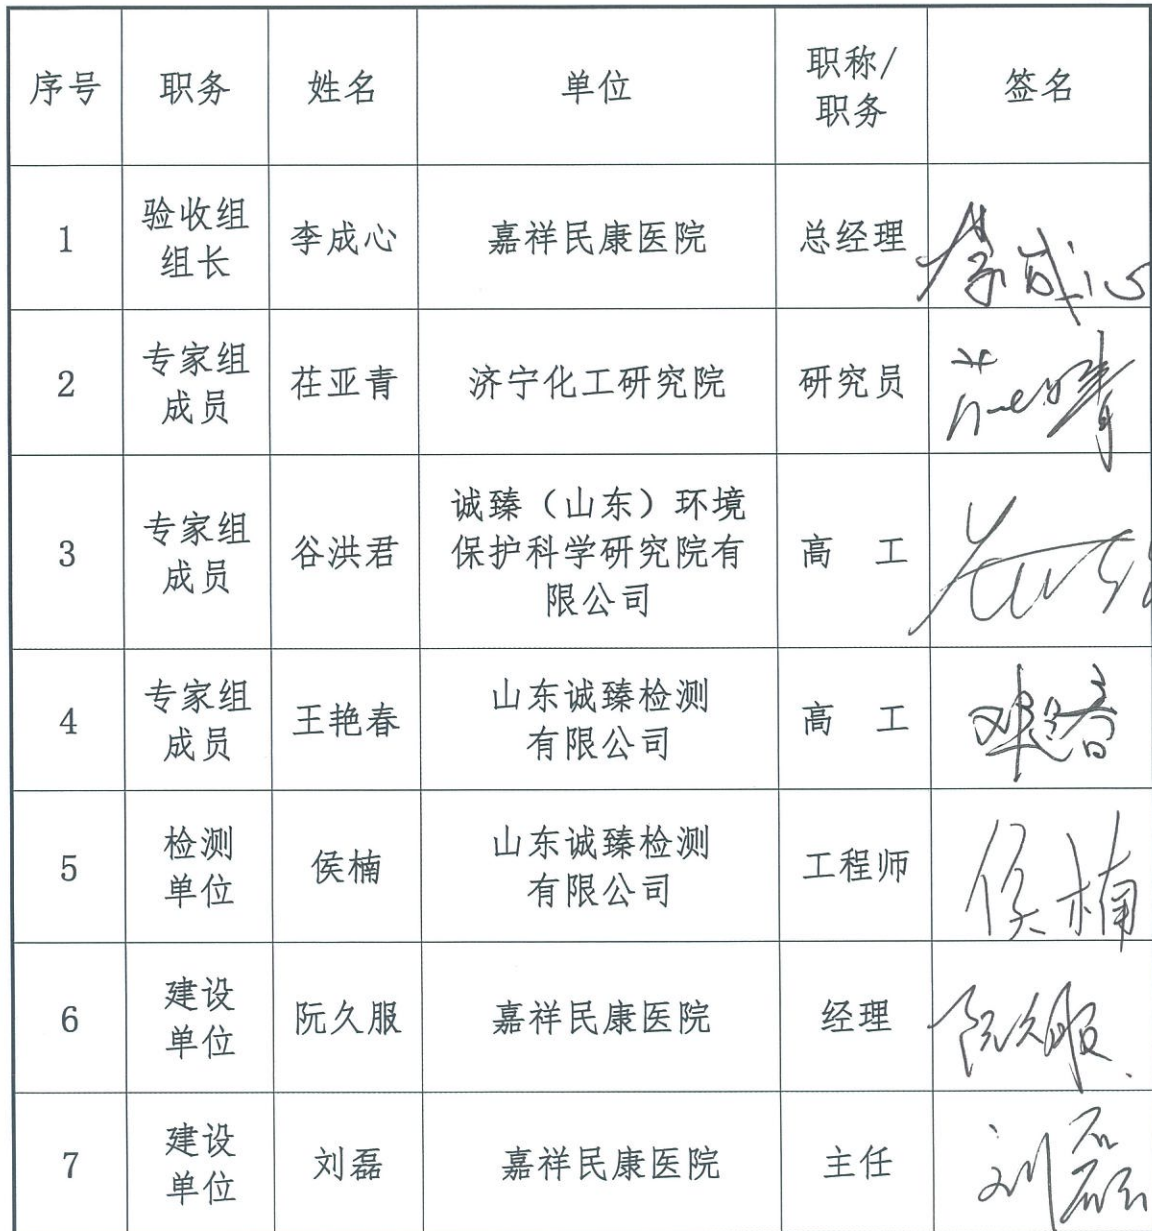 序号 职务 姓名 单位 职称/
职务 签名
1 验收组
组长 李成心 嘉祥民康医院 总经理 李成心
2 专家组
成员 茌亚青 济宁化工研究院 研究员
3 专家组
成员 谷洪君 诚臻（山东）环境
保护科学研究院有
限公司 高 工
4 专家组
成员 王艳春 山东诚臻检测
有限公司 高 工
5 检测
单位 侯楠 山东诚臻检测
有限公司 工程师 侯楠
6 建设
单位 阮久服 嘉祥民康医院 经理 阮久服
7 建设
单位 刘磊 嘉祥民康医院 主任 刘磊